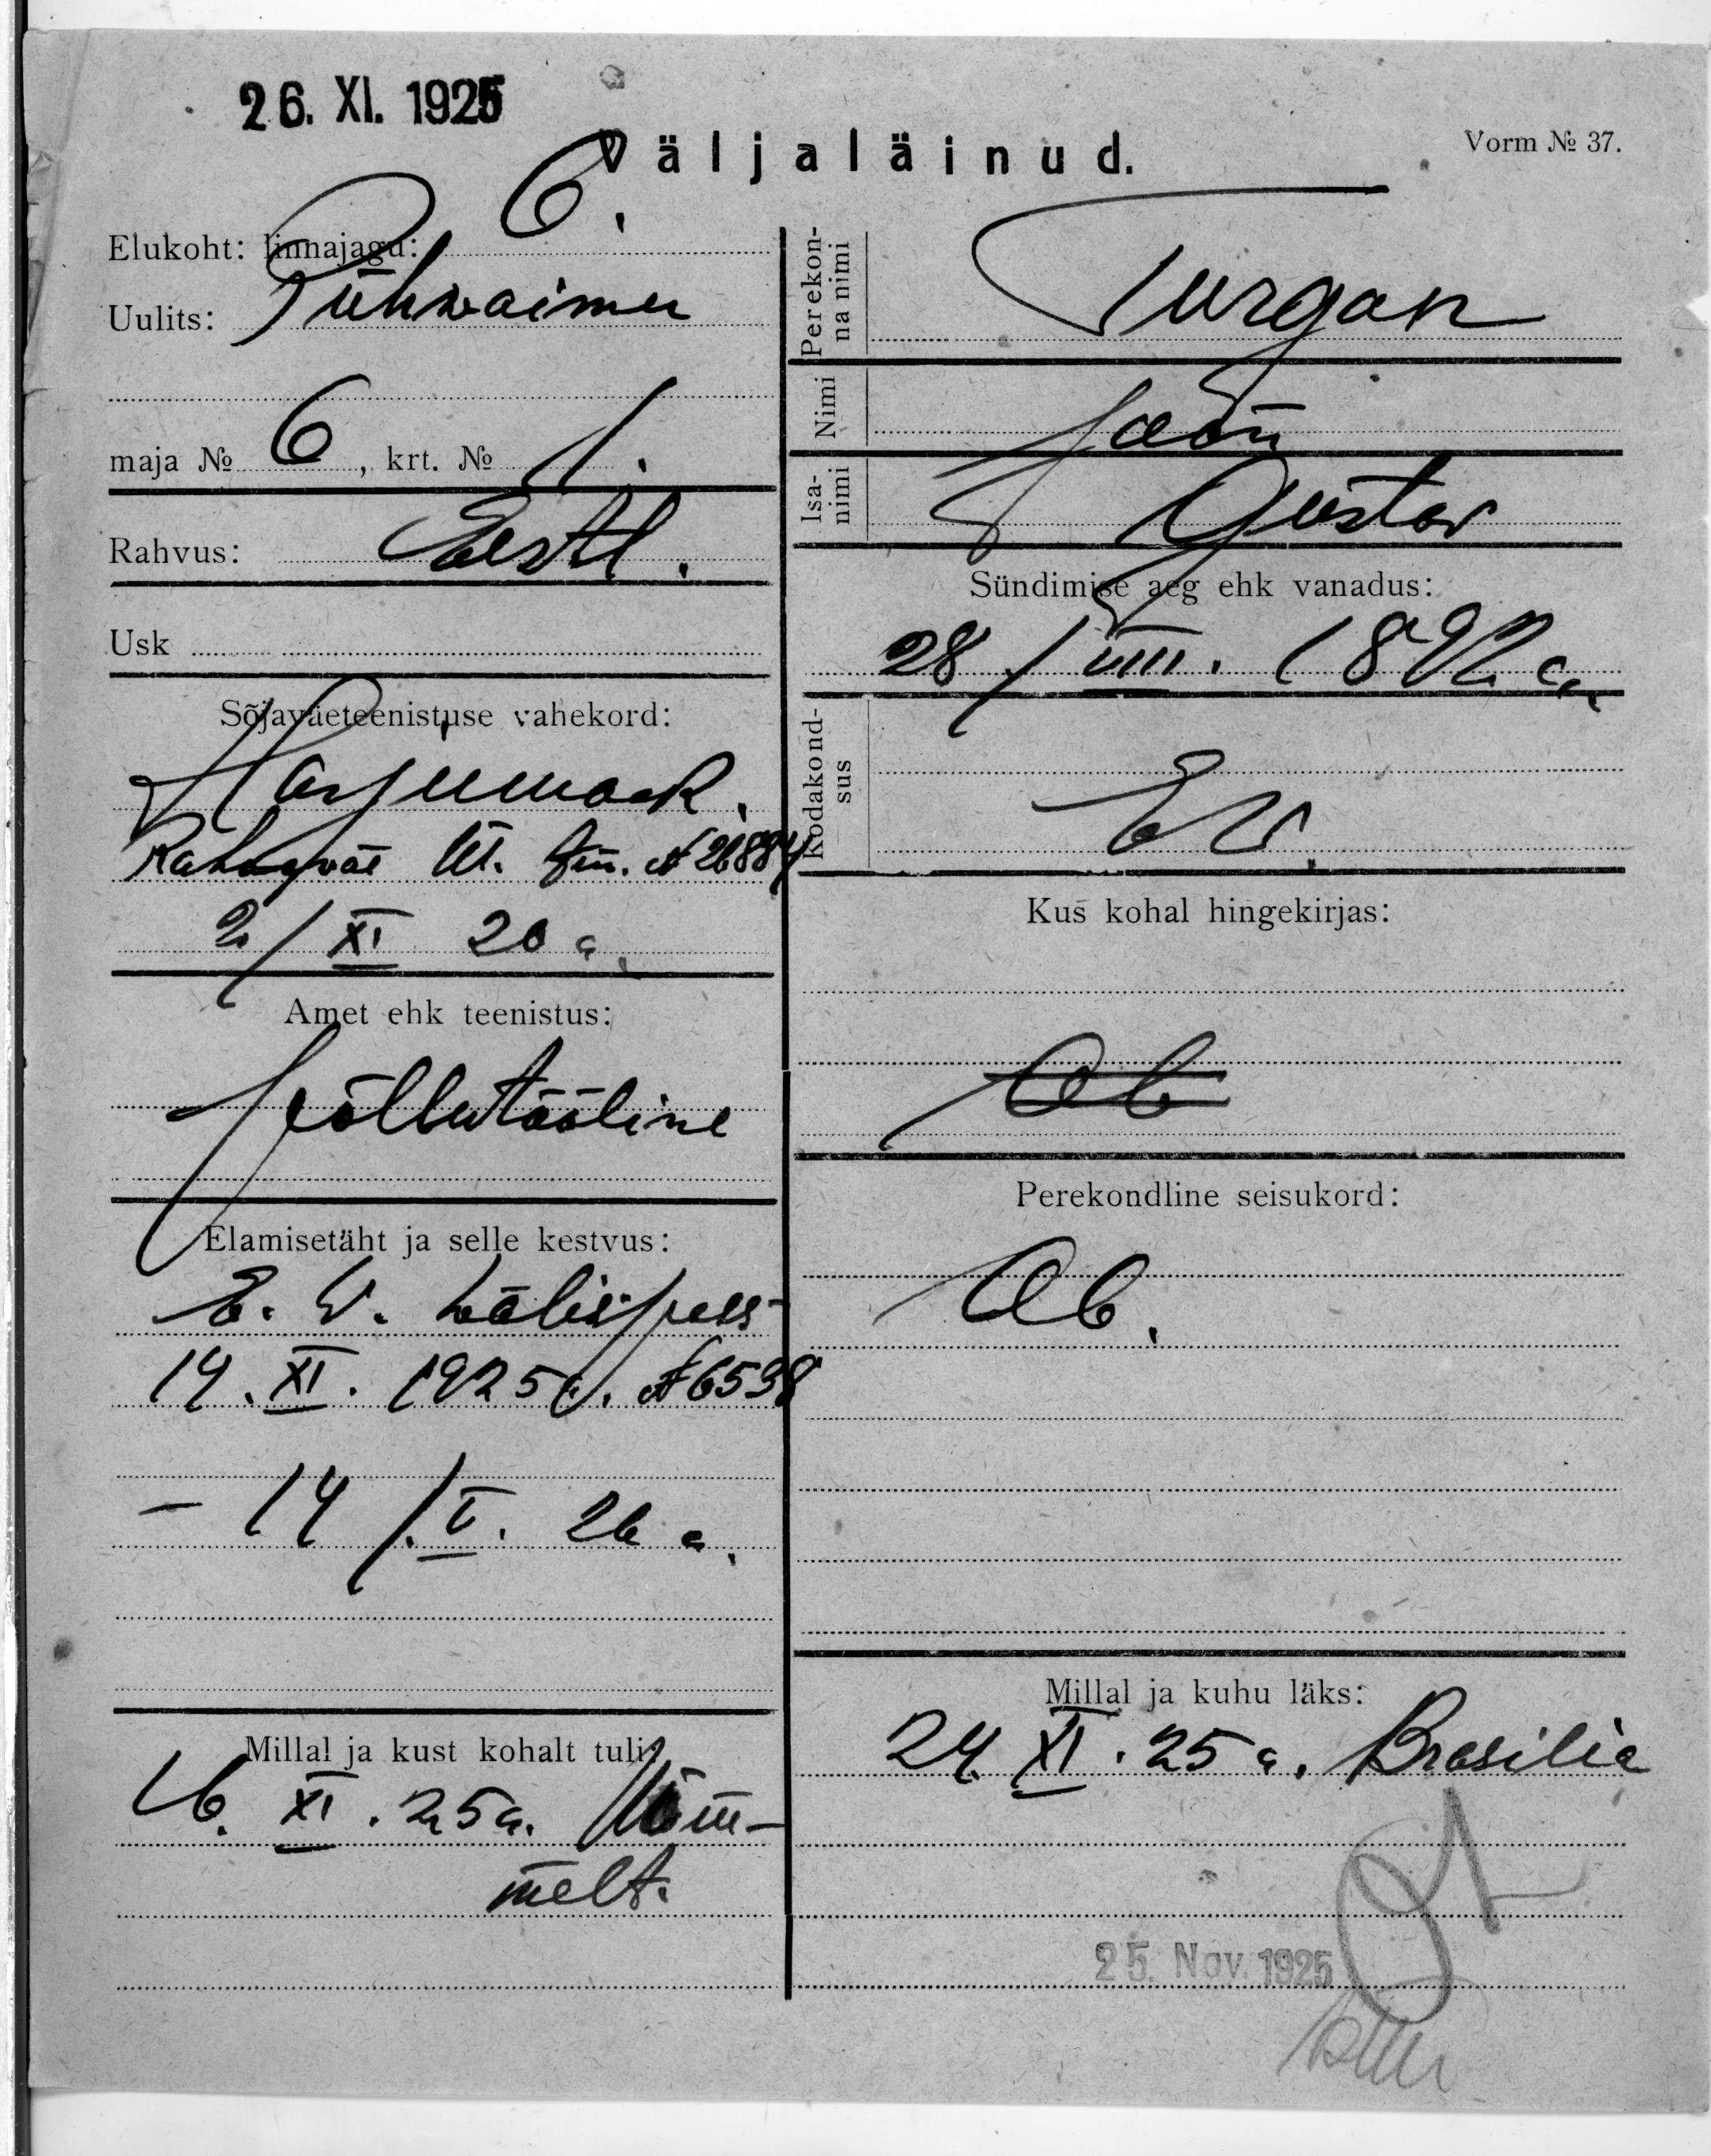 26. XI. 1925
Väljaläinud.
Vorm № 37.
Elukoht: linnajagu: 6.
Uulits: Pühwaimu
maja № 6, krt. № 1.
Rahvus: Eestl.
Usk
Sõjaväeteenistuse vahekord:
Harjumaak.
Rahvaväe № 26884
2/XI 20 a.
Amet ehk teenistus:
Põllutööline
Elamisetäht ja selle kestvus:
E. W. wälispass
14. XI. 1925 a. № 6538
- 14/.V. 26 a.
Millal ja kust kohalt tuli
16. XI. 25 a. Nõm-
melt.
Perekonna nimi
Turgan
Nimi
Jaan
Isanimi
Gustav
Sündimise aeg ehk vanadus:
28/VIII. 1892 a.
Kodakondsus
E W.
Kus kohal hingekirjas:
Ab
Perekondline seisukord:
Ab.
Millal ja kuhu läks:
24 XI. 25 a. Brasilia
25. Nov. 1925